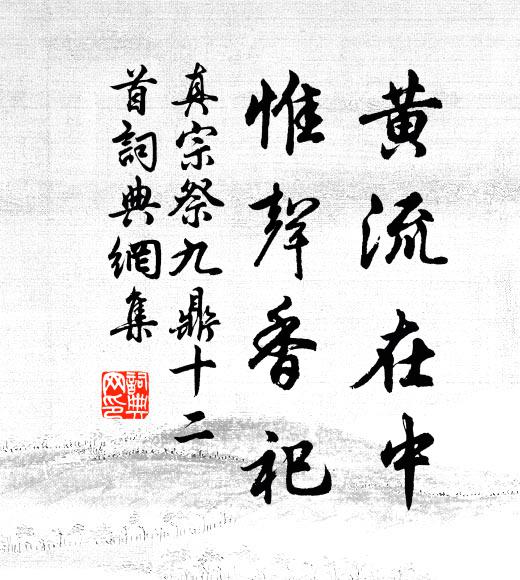 黃流在中
惟聲香祀
真宗祭九鼎十二
首詞典網集
詞典
网印